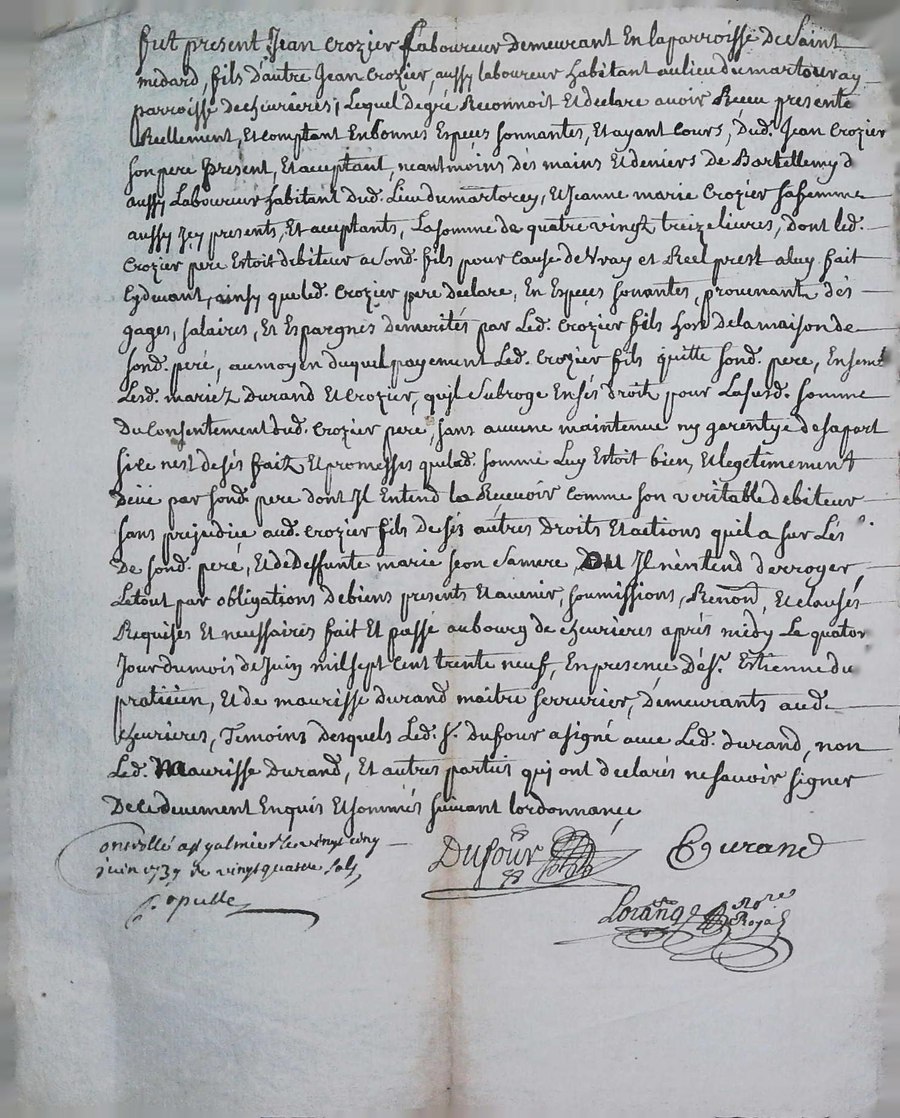 fut present Jean Crozier Laboureur demeurant En laparroisse de Saint
medard, fils d'autre Jean Crozier, aussy laboureur habitant aulieu dumartouray
parroisse dechevrieres; Lequel degré Reconnoit Et declare avoir Receu presente
Reellement, Et comptant Enbonnes Especes sonnantes, Et ayant Cours, Dud. Jean Crozier
son pere present, Et aceptant, neantmoins des mains Et deniers de Bartellemy d
aussy Laboureur habitant dud. Lieu dumartorey, Et Jeanne marie Crozier safemme
aussy icy presents, Et aceptants, Lasomme de quatre vingt treize livres, dont led.
Crozier pere Estoit debiteur a sond. fils pour Cause de vray et Reel prest aluy fait
Cydevant, ainsy queled. Crozier pere declare, En Especes sonantes, provenant dés
gages, salaires, Et Espargnes demerités par Led. Crozier fils hors delamaison de
sond. peré, au moyen duquel payement Led. Crozier fils quitte sond. pere, Ensem
Lesd. mariez Durand Et Crozier, quil Subroge Ensés droits pour Lasusd. somme
Du Consentement dud. Crozier pere, sans aucune maintenue ny garentye desapart
sice nest desés faits Et promesses quelad. somme Luy Estoit bien, Et legetimement
Deüe par sond. pere dont Il Entend la Recevoir Comme son veritable debiteur
sans prejudice aud. Crozier fils Desés autres Droits Et actions quila sur Lés
De sond. peré, Et de Deffunte marie Jeon Samere, Il n'entend derroger
Letout par obligations debiens presents Et avenir, soumissions, Renon, Et clausés
Requises Et necessaires fait Et passé aubourg de chevrieres aprés midy Le quator
Jour dumois de Juin mil sept Cent trente neuf, En presence de sr. Estienne du
praticien, Et de maurisse durand maitre serrurier, demeurants aud.
chevrieres, Témoins desquels Led. sr. Dufour asigné avec Led. durand, non
Led. Maurisse Durand, Et autres parties qui ont declarés nesavoir signer
Dece duement Enquis Et sommés suivant lordonnance
Controllé a st galmier le vingt cinq
juin 1739 Re vingt quatre sols
Dufour
Durand
Lorange Nore Royal